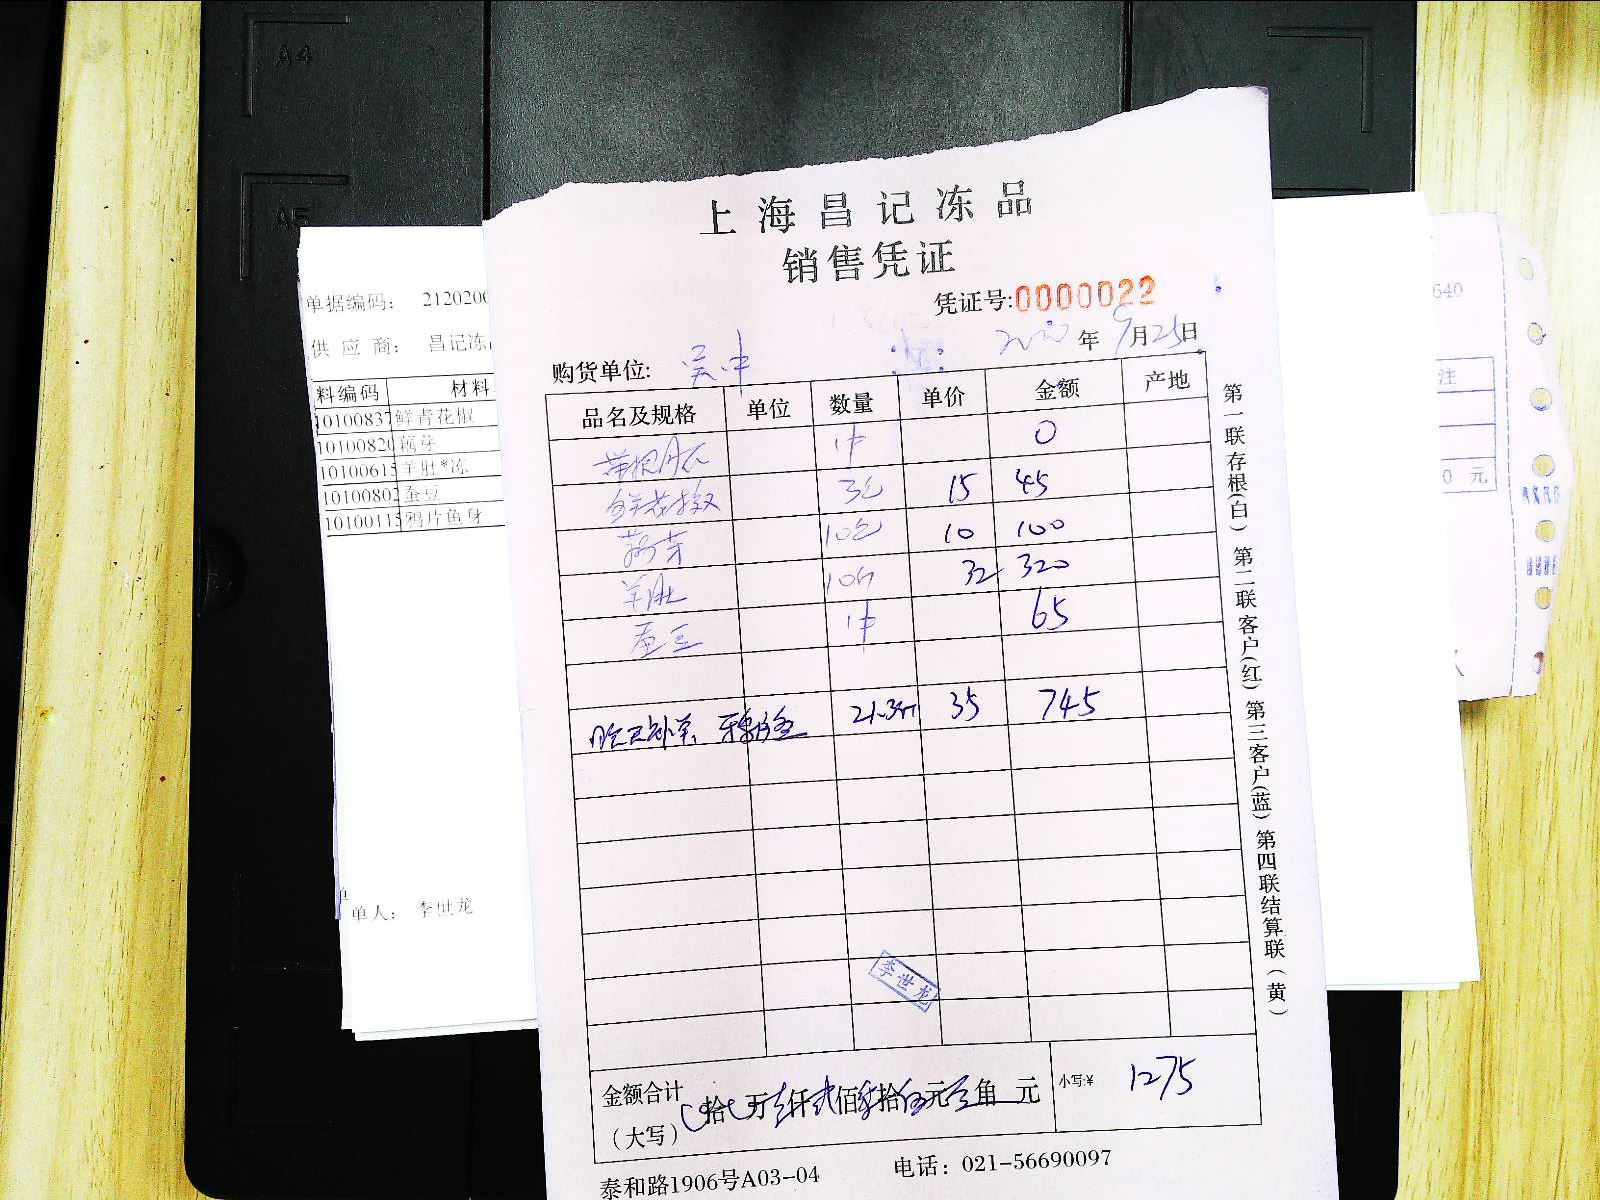 A4
A5
上海昌记冻品
销售凭证
凭证号:0000022
年9月25日
购货单位: 吴中
品名及规格 单位 数量 单价 金额 产地
1件 0
鲜花椒 3包 15 45
藕芽 10包 10 100
羊肚 10斤 32 320
蚕豆 1件 65
21.3斤 35 745
李世龙
金额合计
(大写) 拾 万 仟 佰 拾 元 角 元
小写:¥ 1275
泰和路1906号A03-04 电话: 021-56690097
第一联存根(白) 第二联客户(红) 第三客户(蓝) 第四联结算联(黄)
单据编码: 2120200
供应商: 昌记冻
料编码 材料
10100837 鲜青花椒
10100820 藕芽
10100615 羊肚*冻
10100802 蚕豆
10100115 鸦片鱼身
单人: 李世龙
640
注
0 元